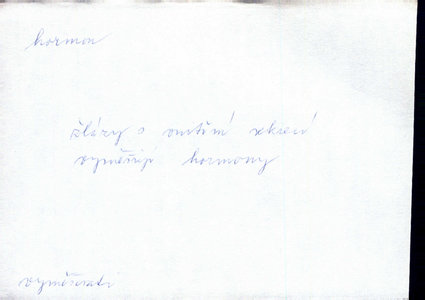 hormon
žlázy s vnitřní sekrecí
vyměšují hormony
vyměšovati